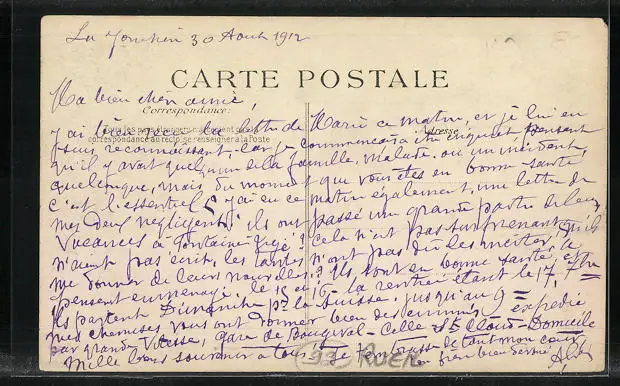 La Jonchère 30 Août 1912
CARTE POSTALE
Ma bien chère amie,
Correspondance
Adresse
J'ai bien reçu la lettre de Marie ce matin, et je lui en
Tous les pays étrangers n'acceptent pas la
correspondance au recto, se renseigner à la Poste
suis reconnaissant, car je commençais à être inquiet, pensant
qu'il y avait quelqu'un de la famille, malade, ou un incident
quelconque, mais du moment que vous êtes en bonne santé
c'est l'essentiel. J'ai eu ce matin également, une lettre de
mes deux négligents; ils ont passé une grande partie de leurs
vacances à Fontaine cela n'est pas surprenant qu'ils
n'aient pas écrit, les tantes n'ont pas dû les inciter, à
me donner de leurs nouvelles. Ils sont en bonne santé, et
pensent le 15 16 la rentrée étant le 17,
Ils partent Dimanche pr la Suisse, jusqu'au 9
mes chemises vous ont donner bien des ennuis, expédié
par grande vitesse, gare de Bougival - Celle St Cloud - Domicile
Mille bons souvenir à tous Je t'embrasse de tout mon cœur
ton bien
93 RUEIL